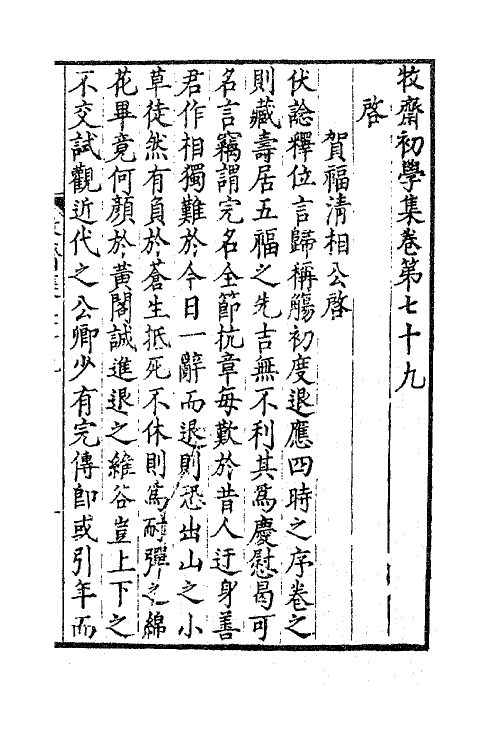 牧齋初學集卷第七十九
啓
賀福清相公啓
伏諗釋位言歸稱觴初度退應四時之序卷之
則藏壽居五福之先吉無不利其爲慶慰曷可
名言竊謂完名全節抗章每歎於昔人迂身善
君作相獨難於今日一辭而退則恐出山之小
草徒然有負於蒼生抵死不休則爲耐彈之綿
花畢竟何顏於黃閣誠進退之維谷豈上下之
不交試觀近代之公卿少有完傳卽或引年而